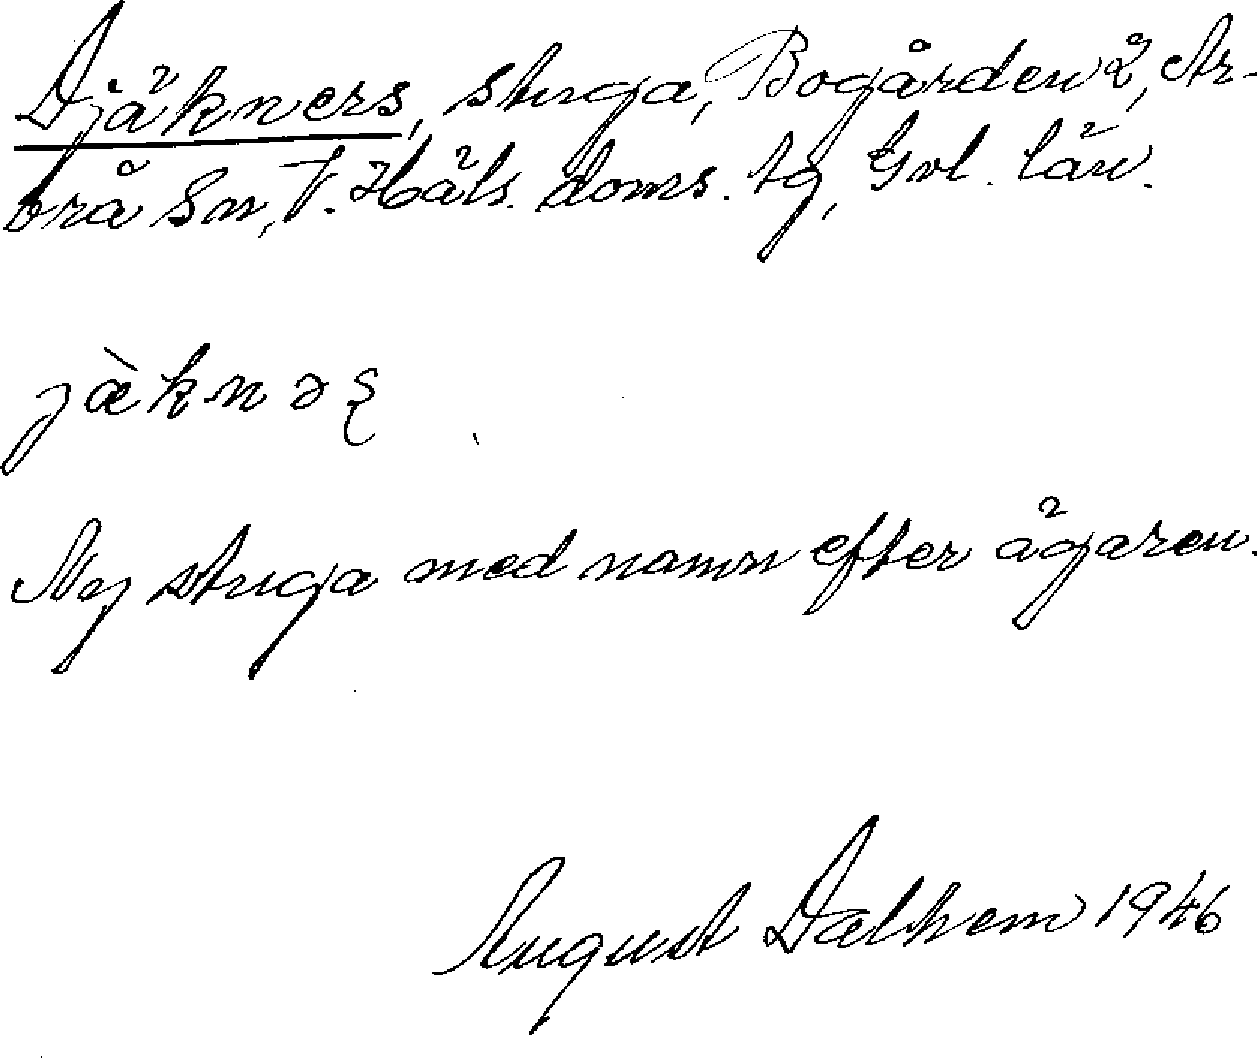 Djäkners, stuga, Bogården 2, Ar-
brå Sn, V. Häls. doms. tg, Gvl. län.
jæ̀knəʂ
Ny stuga med namn efter ägaren.
August Dalhem 1946